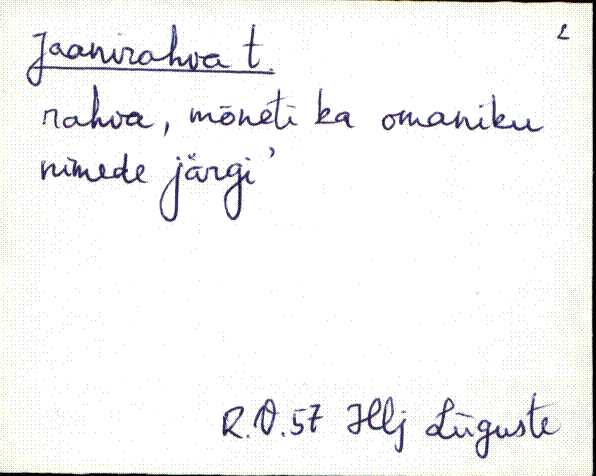 2
Jaanirahva t.
rahva, mõnéti ka omaniku
nimede järgi'
R.O.57 Hlj Lüguste